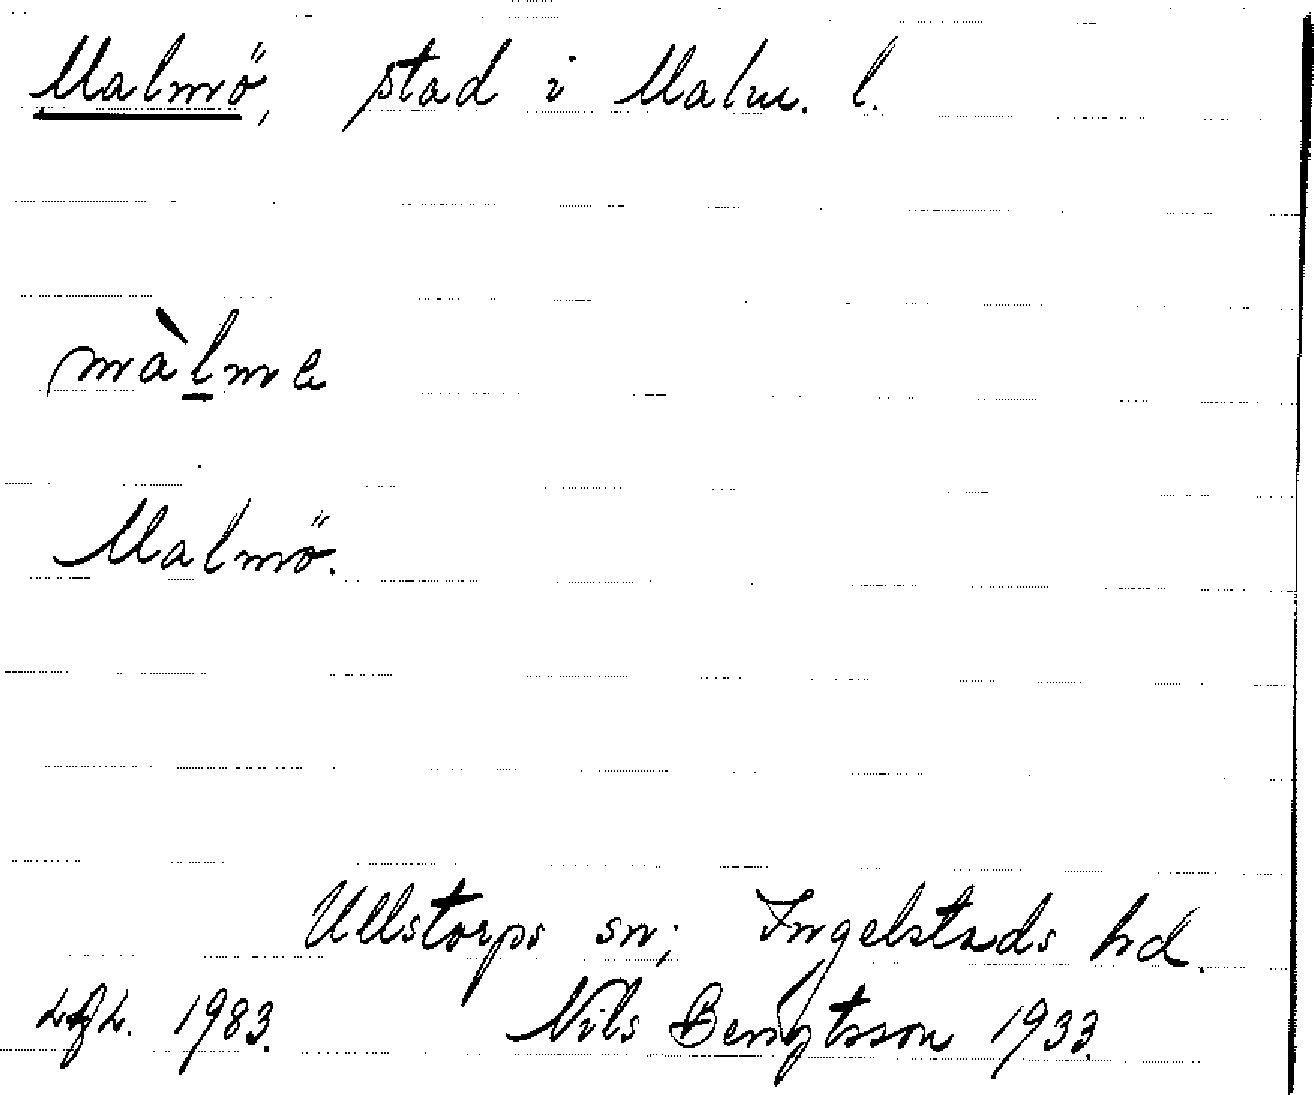 Malmö, stad i Malm. l.
màl̲me
Malmö.
Ullstorps sn; Ingelstads hd.
1983. Nils Bengtsson 1933.